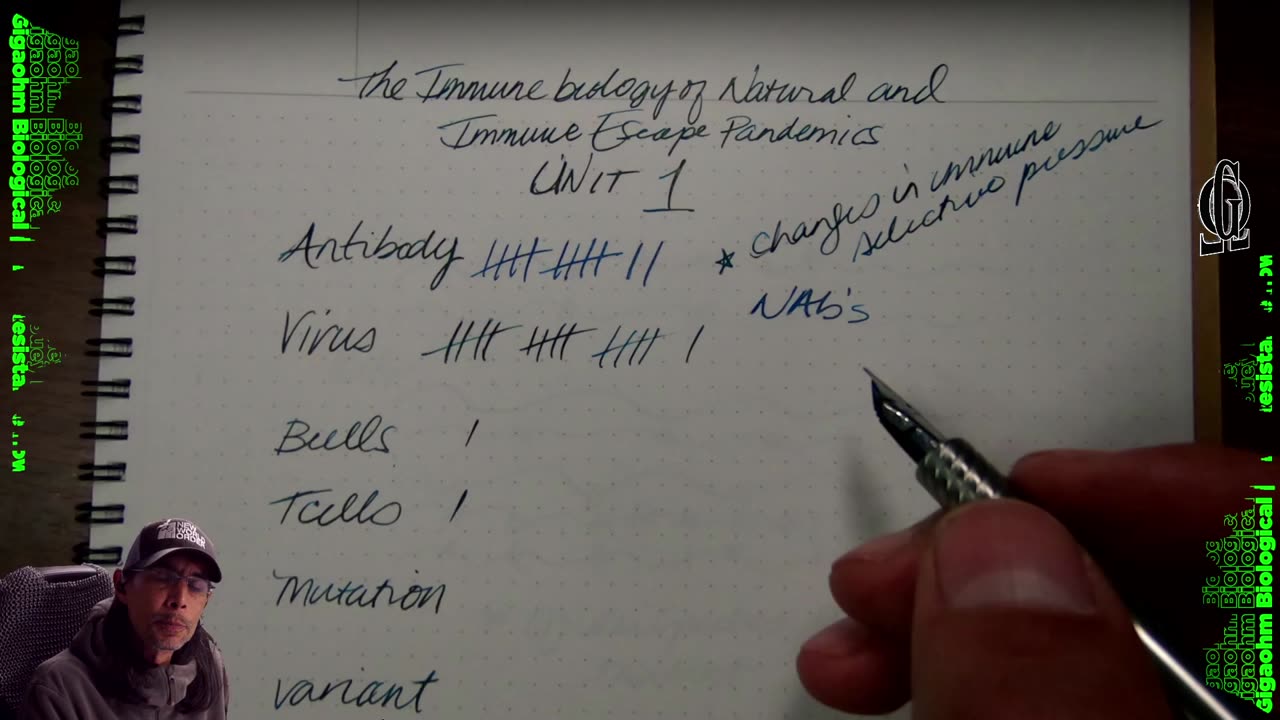 The Immune biology of Natural and
Immune Escape Pandemics
UNIT 1
Antibody
* changes in immune
selective pressure
NAb's
Virus
Bcells
Tcells
Mutation
variant
NEW
WORLD
ORDER
Gigaohm Biological |
resista
Gigaohm Biological |
resista